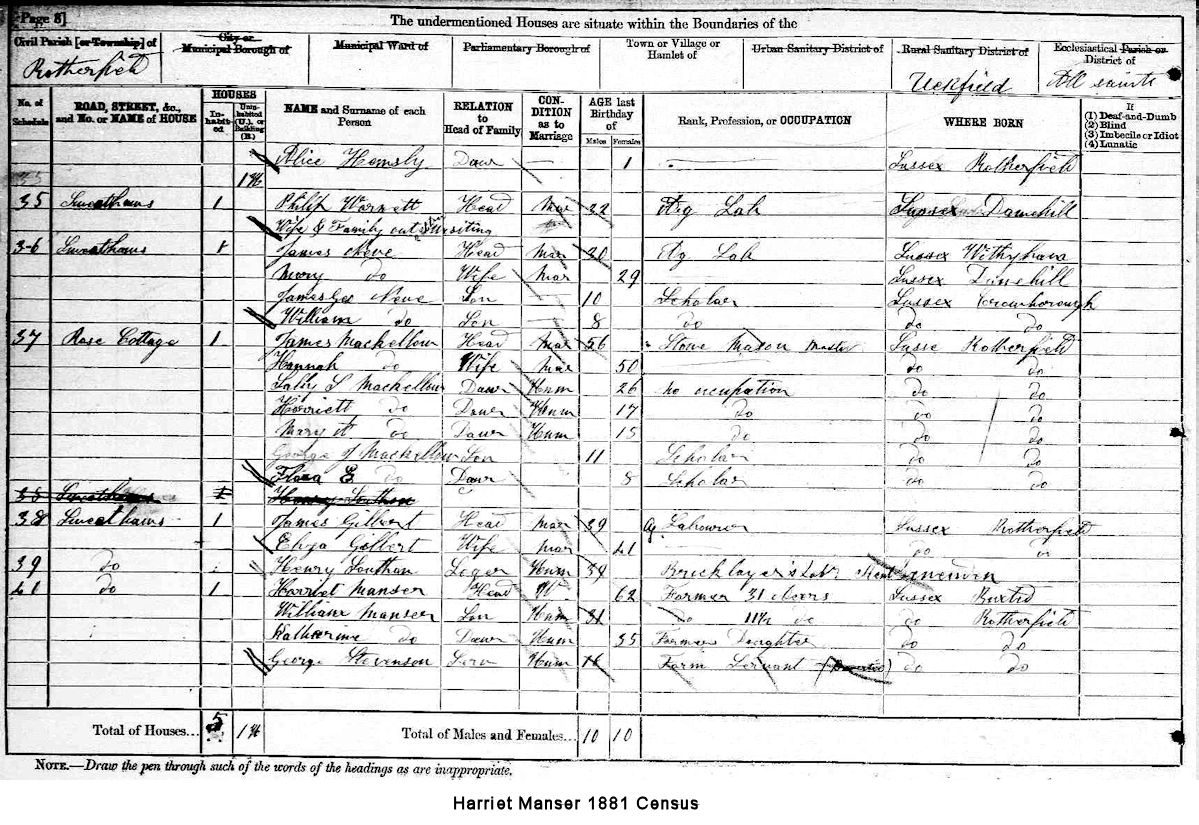 Page 8]
The undermentioned Houses are situate within the Boundaries of the
Civil Parish [or Township] of
City or Municipal Borough of
Municipal Ward of
Parliamentary Borough of
Town or Village or Hamlet of
Urban Sanitary District of
Rural Sanitary District of
Ecclesiastical Parish or District of
Rotherfield
Uckfield
All Saints
No. of Schedule
ROAD, STREET, &c., and No. or NAME of HOUSE
HOUSES
Inhabited
Uninhabited (U.), or Building (B.)
NAME and Surname of each Person
RELATION to Head of Family
CONDITION as to Marriage
AGE last Birthday of
Males
Females
Rank, Profession, or OCCUPATION
WHERE BORN
If
(1) Deaf-and-Dumb
(2) Blind
(3) Imbecile or Idiot
(4) Lunatic
Alice Hemsly Daur — 1 Sussex Rotherfield
35
1
35 1 Philip Head Mar 32 Ag Lab Sussex
Wife & Family out visiting
36 1 James Neve Head Mar 30 Ag Lab Sussex Withyham
Mary do Wife Mar 29 Sussex
James Geo Neve Son 10 Scholar Sussex
William do Son — 8 do do do
37 Rose Cottage 1 James Mackellow Head Mar 56 Stone Mason Master Susse Rotherfield
Hannah do Wife Mar 50 do do
L Mackellow Daur Unm 26 No occupation do do
Harriett do Daur Unm 17 do do do
Mary do Daur Unm 15 do do do
George Mackellow Son 11 Scholar do do
Flora E do Daur 8 Scholar do do
38 1 Henry Southon
38 1 James Gilbert Head Mar 39 Ag Labourer Sussex Rotherfield
Eliza Gilbert Wife Mar 41 do do
39 do Henry Southon Loger Unm 39 Bricklayer's Lab Kent
41 do 1 Harriet Manser Head W 62 Farmer 31 Acers Sussex Buxted
William Manser Son Unm 31 do 11½ do do Rotherfield
Katherine do Daur Unm 35 Farmers Daughter do do
George Stevenson Unm 16 Farm Servant do do
Total of Houses... 5 1
Total of Males and Females... 10 10
NOTE.—Draw the pen through such of the words of the headings as are inappropriate.
Harriet Manser 1881 Census